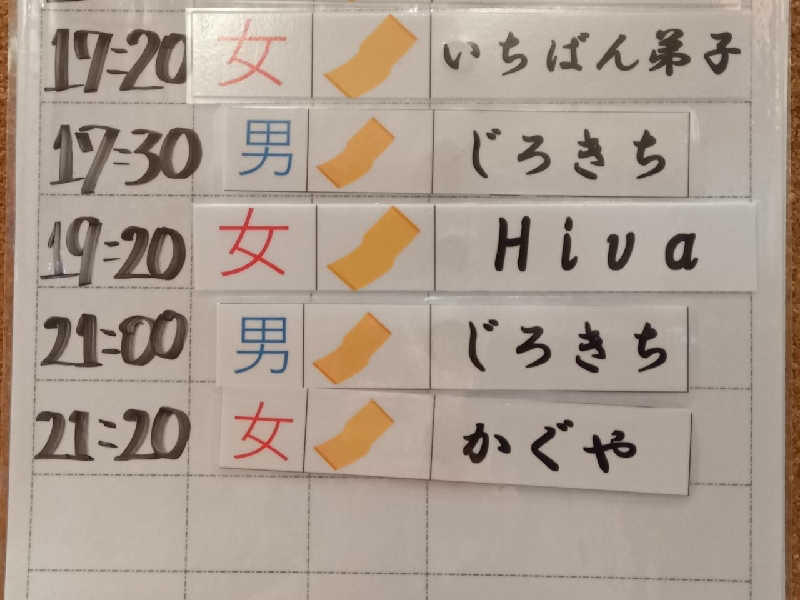 17:20 女 いちばん弟子
17:30 男 じろきち
19:20 女 Hiva
21:00 男 じろきち
21:20 女 かぐや